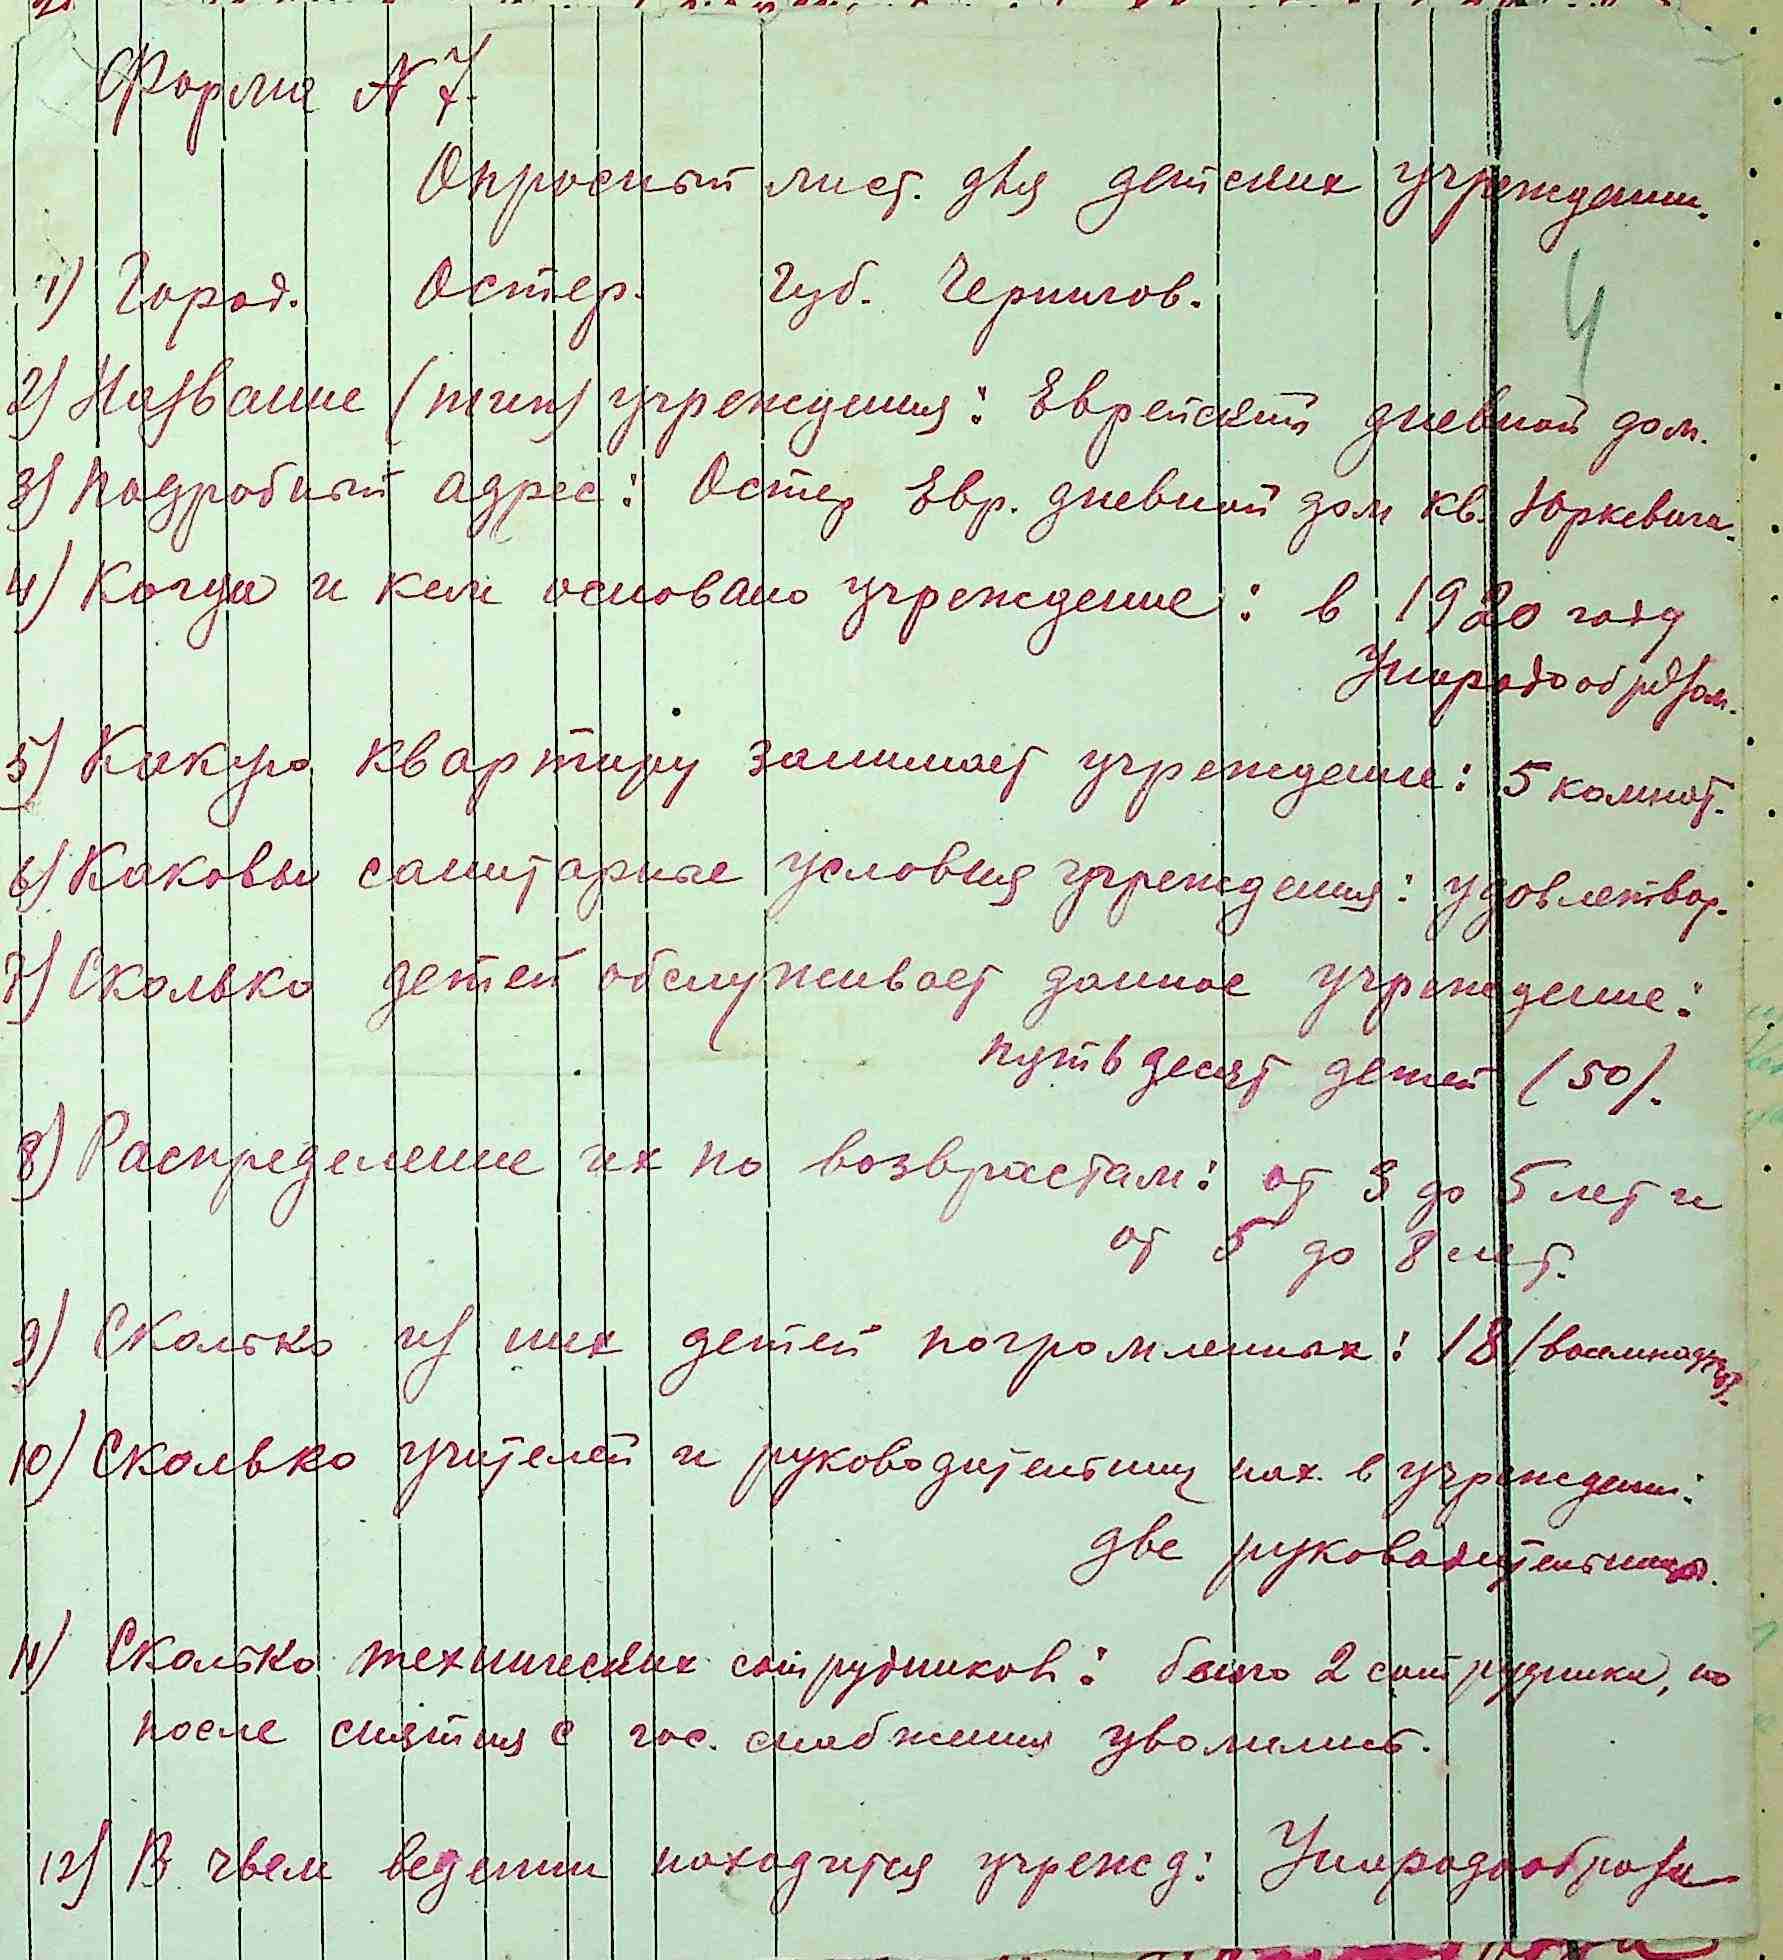 Форма № 7.
Опросный лист. для детских учреждени.
4
1) Город. Остер. Губ. Чернигов.
2) Название (тип) учреждения: Еврейский дневной дом.
3) Подробный адрес: Остер Евр. дневной дом кв. Юркевича.
4) Когда и кем основано учреждение: в 1920 году
Ународобразом.
5) Какую квартиру занимает учреждение: 5 комнат.
6) Каковы санитарные условия учреждения: удовлетвор.
7) Сколько детей обслуживает данное учреждение:
пятьдесят детей (50).
8) Распределение их по возврастам: от 3 до 5 лет и
от 5 до 8 лет.
9) Сколько из них детей погромленных: 18 (восемнадцать).
10) Сколько учителей и руководительниц нах. в учреждени:
две руководительницы.
11) Сколько технических сотрудников: было 2 сотрудника, но
после снятия с гос. снабжения уволились.
12) В чьем ведении находится учрежд: Ународообраза